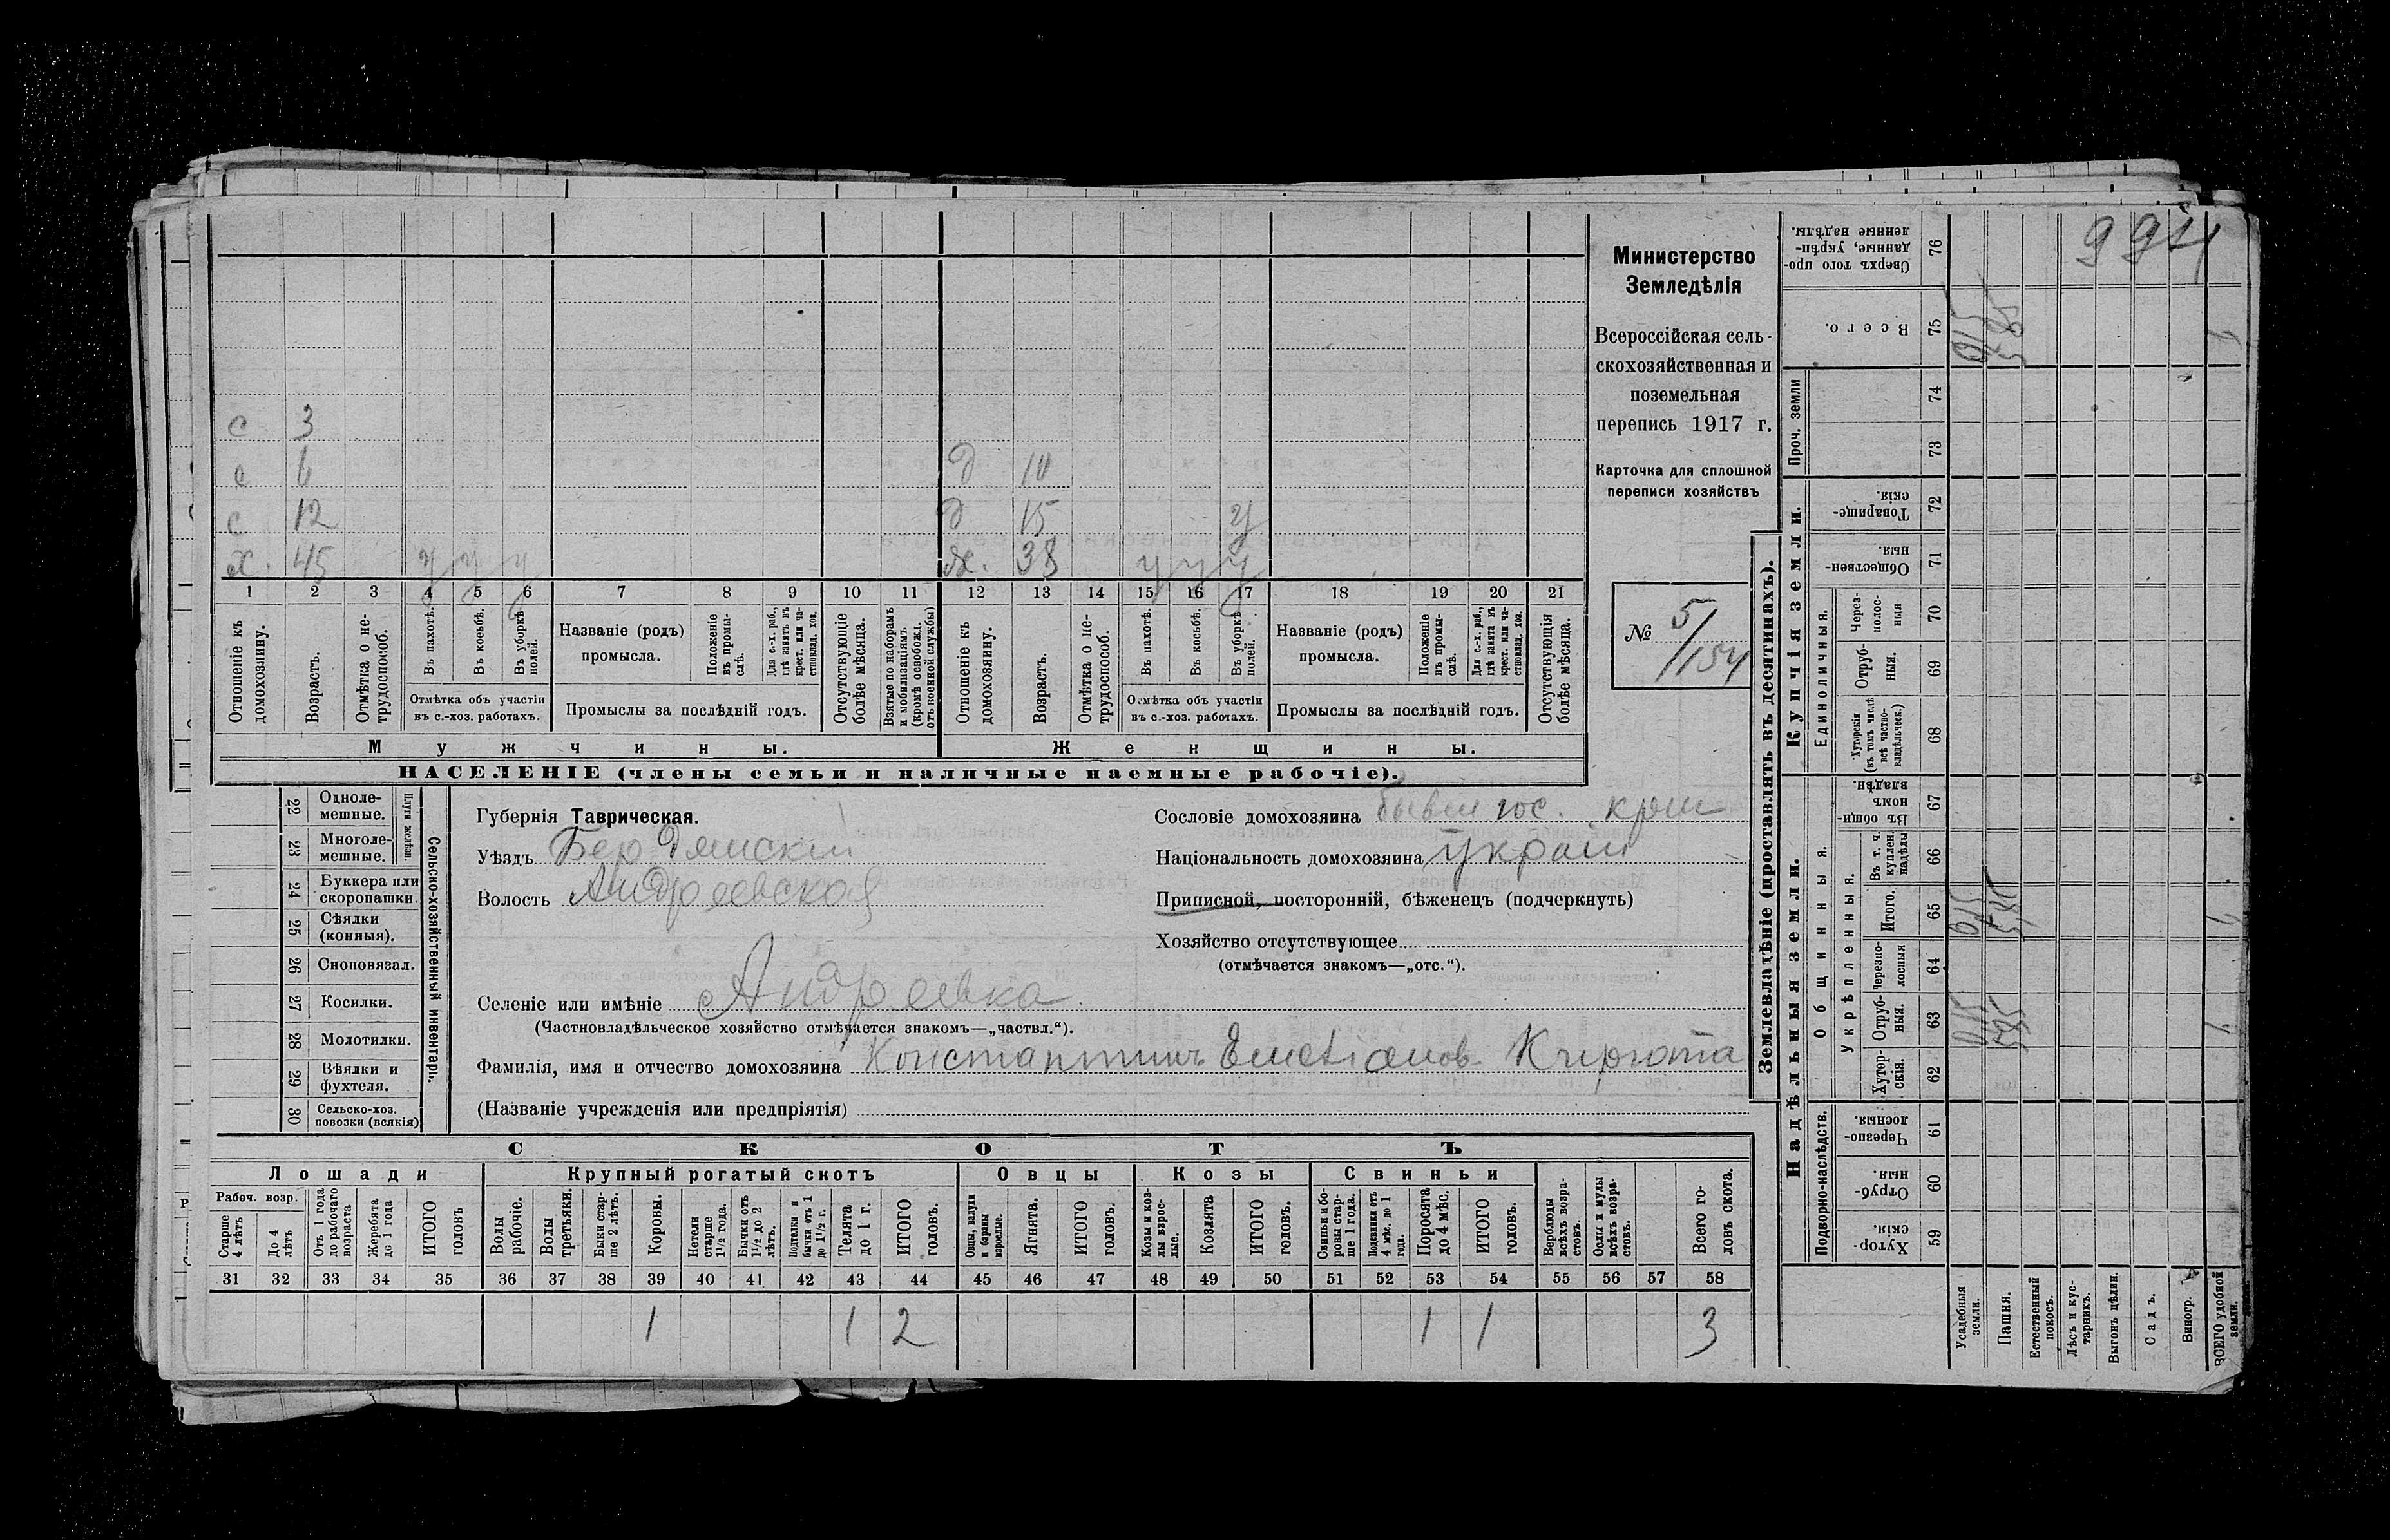 Министерство
Земледѣлія
Всероссійская сель-
скохозяйственная и
поземельная
перепись 1917 г.
Карточка для сплошной
переписи хозяйствъ
№ 5/154
с 3
с 6
с 12
х. 45 у у у
д 10
д 15 у
ж. 38 у у у
1 2 3 4 5 6 7 8 9 10 11 12 13 14 15 16 17 18 19 20 21
Отношеніе къ домохозяину.
Возрастъ.
Отмѣтка о не-трудоспособ.
Въ пахотѣ.
Въ косьбѣ.
Въ уборкѣ полей.
Отмѣтка объ участіи
въ с.-хоз. работахъ.
Названіе (родъ)
промысла.
Положеніе въ промы-слѣ.
Для с.-х. раб., гдѣ занятъ въ крест. или ча-ствовлад. хоз.
Промыслы за послѣдній годъ.
Отсутствующіе болѣе мѣсяца.
Взятые по наборамъ и мобилизаціямъ (кромѣ освобожд. отъ военной службы)
Отношеніе къ домохозяину.
Возрастъ.
Отмѣтка о не-трудоспособ.
Въ пахотѣ.
Въ косьбѣ.
Въ уборкѣ полей.
Отмѣтка объ участіи
въ с.-хоз. работахъ.
Названіе (родъ)
промысла.
Положеніе въ промы-слѣ.
Для с.-х. раб., гдѣ занята въ крест. или ча-ствовлад. хоз.
Промыслы за послѣдній годъ.
Отсутствующія болѣе мѣсяца.
Мужчины.
Женщины.
НАСЕЛЕНІЕ (члены семьи и наличные наемные рабочіе).
Сельско-хозяйственный инвентарь.
Плуги желѣзн.
22 Одноле-мешные.
23 Многоле-мешные.
24 Буккера или скоропашки.
25 Сѣялки (конныя).
26 Сноповязал.
27 Косилки.
28 Молотилки.
29 Вѣялки и фухтеля.
30 Сельско-хоз. повозки (всякія)
Губернія Таврическая.
Уѣздъ Бердянскій
Волость Андреевская
Селеніе или имѣніе с Андреевка.
(Частновладѣльческое хозяйство отмѣчается знакомъ—„частвл.“).
Фамилія, имя и отчество домохозяина Константинъ
(Названіе учрежденія или предпріятія)
Сословіе домохозяина бывш гос.
Національность домохозяина украин
Приписной, посторонній, бѣженецъ (подчеркнуть)
Хозяйство отсутствующее
(отмѣчается знакомъ—„отс.“).
СКОТЪ
Лошади
Крупный рогатый скотъ
Овцы
Козы
Свиньи
Рабоч. возр.
Старше 4 лѣтъ
До 4 лѣтъ
Отъ 1 года до рабочаго возраста
Жеребята до 1 года
ИТОГО головъ
Волы рабочіе.
Волы третьяки.
Быки стар-ше 2 лѣтъ.
Коровы.
Нетели старше 1½ года.
Бычки отъ 1½ до 2 лѣтъ.
Подтелки и бычки отъ 1 до 1½ г.
Телята до 1 г.
ИТОГО головъ.
Овцы, валухи и бараны взрослые.
Ягнята.
ИТОГО головъ.
Козы и коз-лы взрос-лые.
Козлята
ИТОГО головъ.
Свиньи и бо-ровы стар-ше 1 года.
Подсвинки отъ 4 мѣс. до 1 года.
Поросята до 4 мѣс.
ИТОГО головъ.
Верблюды всѣхъ возра-стовъ.
Ослы и мулы всѣхъ возра-стовъ.
Всего го-ловъ скота.
31 32 33 34 35 36 37 38 39 40 41 42 43 44 45 46 47 48 49 50 51 52 53 54 55 56 57 58
1 1 2 1 1 3
Землевладѣніе (проставлять въ десятинахъ).
Надѣльныя земли.
Купчія земли.
Проч. земли
Подворно-наслѣдств.
Общинныя.
Укрѣпленныя.
Единоличныя.
Хутор-скія. 59
Отруб-ныя. 60
Черезпо-лосныя. 61
Хутор-скія. 62
Отруб-ныя. 63
Черезпо-лосныя 64
Итого. 65
Въ т. ч. куплен. надѣлы 66
Въ общи-номъ владѣн. 67
Хуторскія (въ томъ числѣ всѣ частно-владѣльческ.) 68
Отруб-ныя. 69
Через-полос-ныя 70
Обществен-ныя. 71
Товарище-скія. 72
73
74
Всего. 75
Сверхъ того про-данные, укрѣп-ленные надѣлы. 76
Усадебныя земли.
Пашня.
Естественный покосъ.
Лѣсъ и кус-тарникъ.
Выгонъ цѣлин.
Садъ.
Виногр.
ВСЕГО удобной земли.